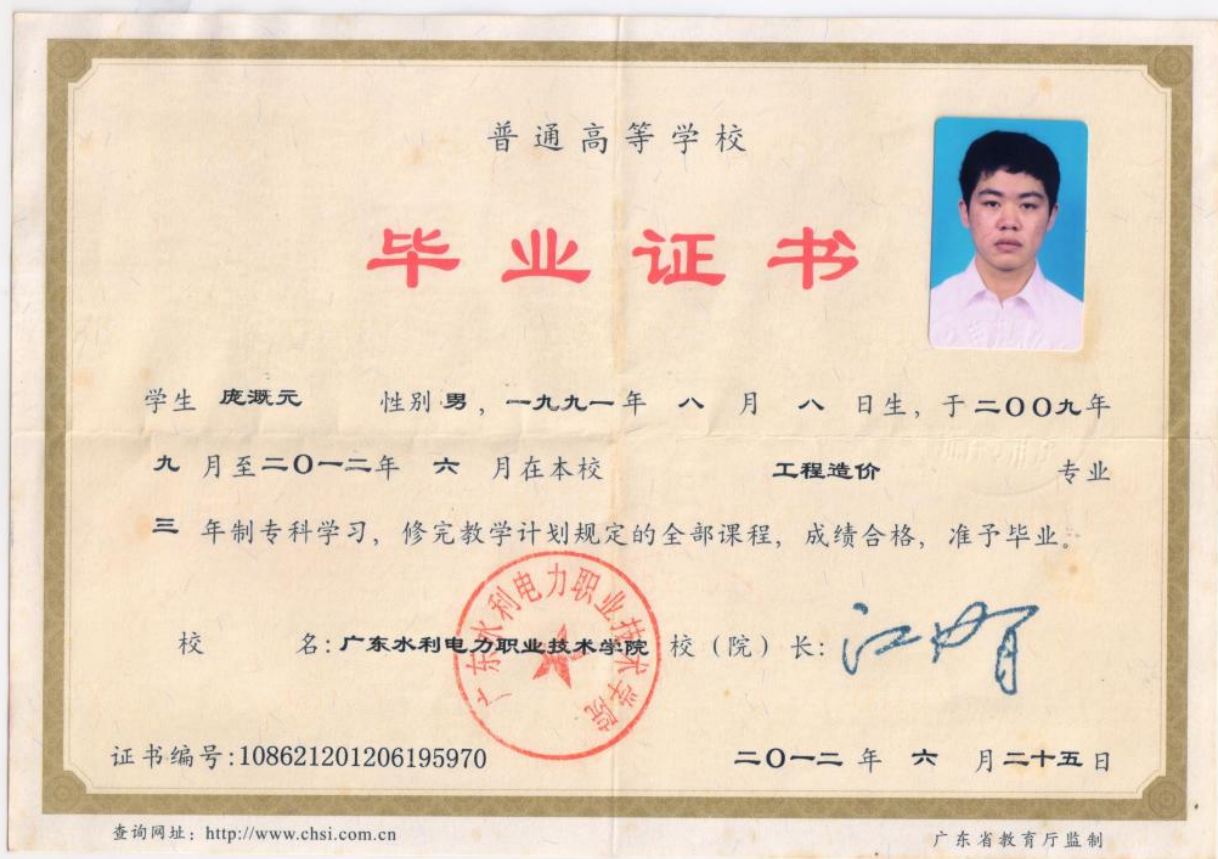 普通高等学校
毕业证书
学生 庞溉元 性别 男，一九九一年 八 月 八 日生，于二〇〇九年
九 月至二〇一二年 六 月在本校 工程造价 专业
三 年制专科学习，修完教学计划规定的全部课程，成绩合格，准予毕业。
广东水利电力职业技术学院
校 名：广东水利电力职业技术学院 校（院）长：
证书编号：108621201206195970 二〇一二 年 六 月二十五日
查询网址：http://www.chsi.com.cn 广东省教育厅监制